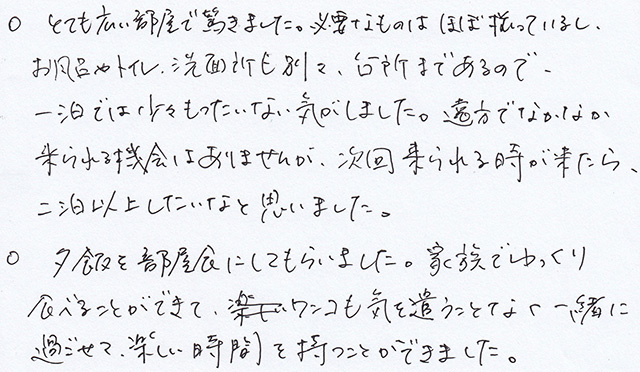 ○ とても広い部屋で驚きました。必要なものはほぼ揃っているし、
お風呂やトイレ、洗面所も別々、台所まであるので、
一泊では少々もったいない気がしました。遠方でなかなか
来られる機会はありませんが、次回来られる時が来たら、
二泊以上したいなと思いました。
○ 夕飯を部屋食にしてもらいました。家族でゆっくり
食べることができて、楽しいワンコも気を遣うことなく一緒に
過ごせて、楽しい時間を持つことができました。